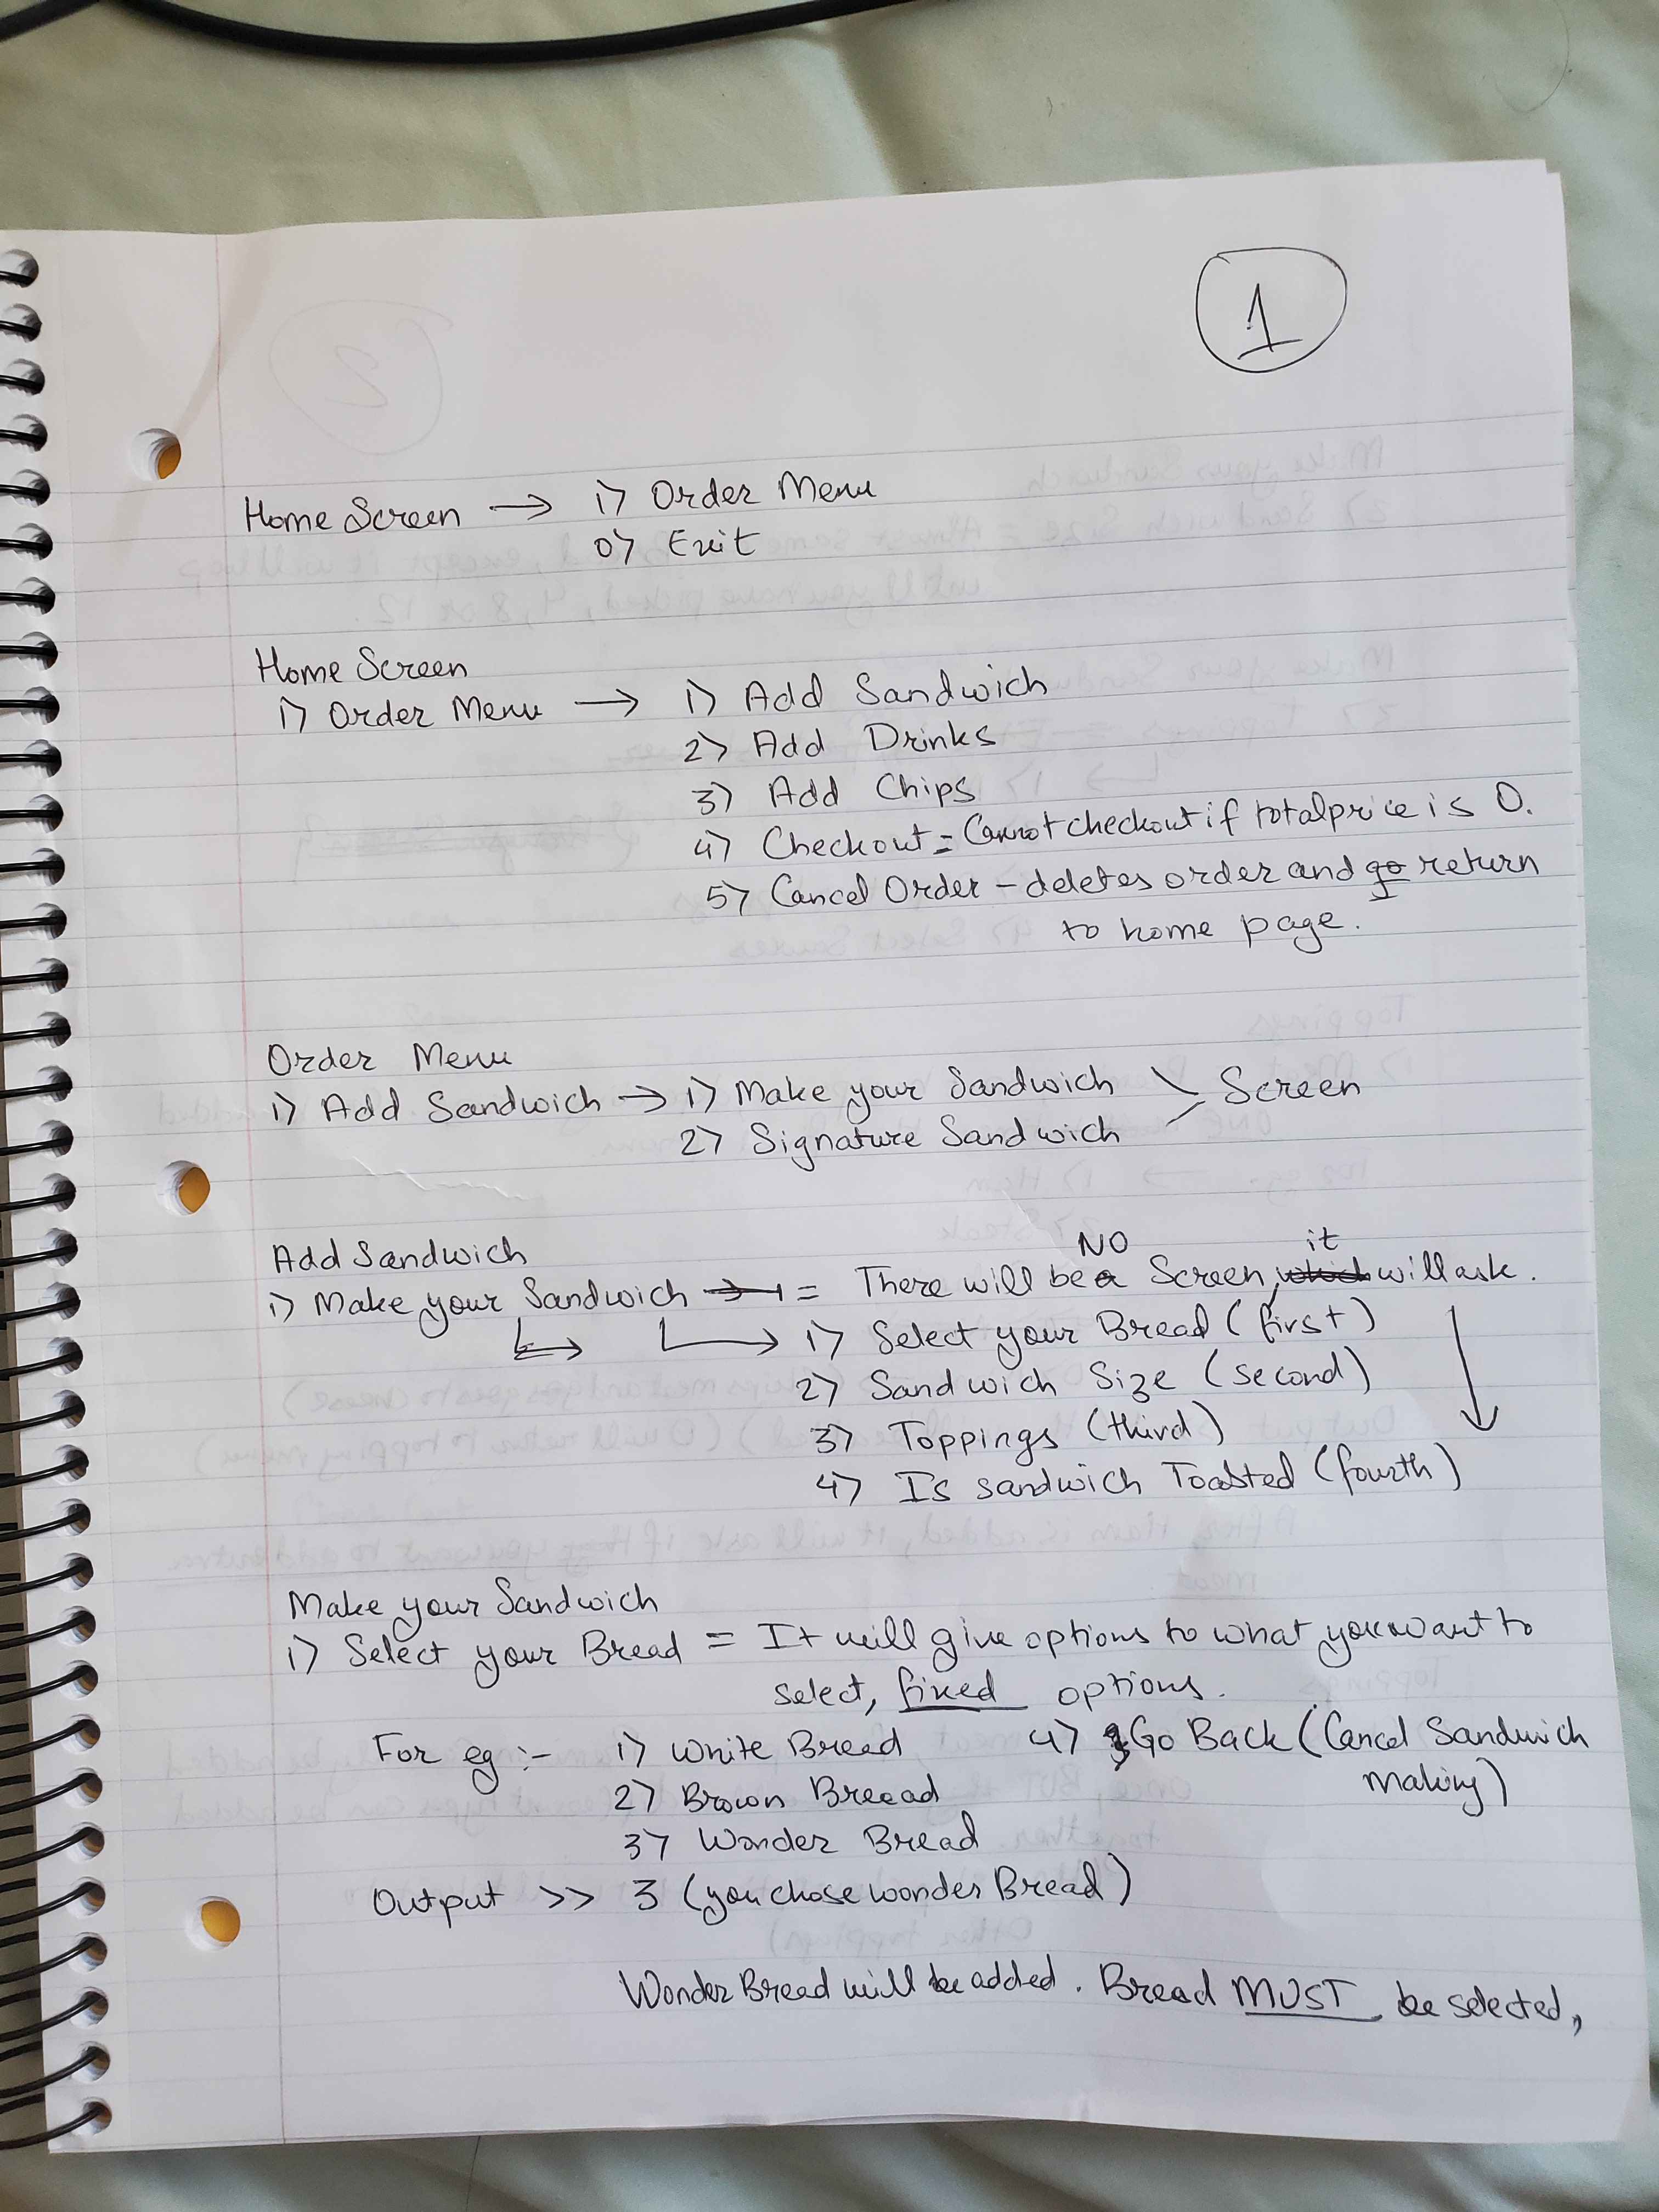 1
Home Screen → 1) Order Menu
0) Exit
Home Screen
1) Order Menu → 1) Add Sandwich
2) Add Drinks
3) Add Chips
4) Checkout = Cannot checkout if total price is 0.
5) Cancel Order - deletes order and go return
to home page.
Order Menu
1) Add Sandwich → 1) Make your Sandwich
2) Signature Sandwich
Screen
Add Sandwich
NO it
1) Make your Sandwich → = There will be a Screen, which will ask.
1) Select your Bread (first)
2) Sandwich Size (second)
3) Toppings (third)
4) Is sandwich Toasted (fourth)
Make your Sandwich
1) Select your Bread = It will give options to what you want to
select, fixed options.
For eg :- 1) White Bread 4) Go Back (Cancel Sandwich
Making)
2) Brown Breead
3) Wonder Bread
Output >> 3 (you chose wonder Bread)
Wonder Bread will be added. Bread MUST be selected,